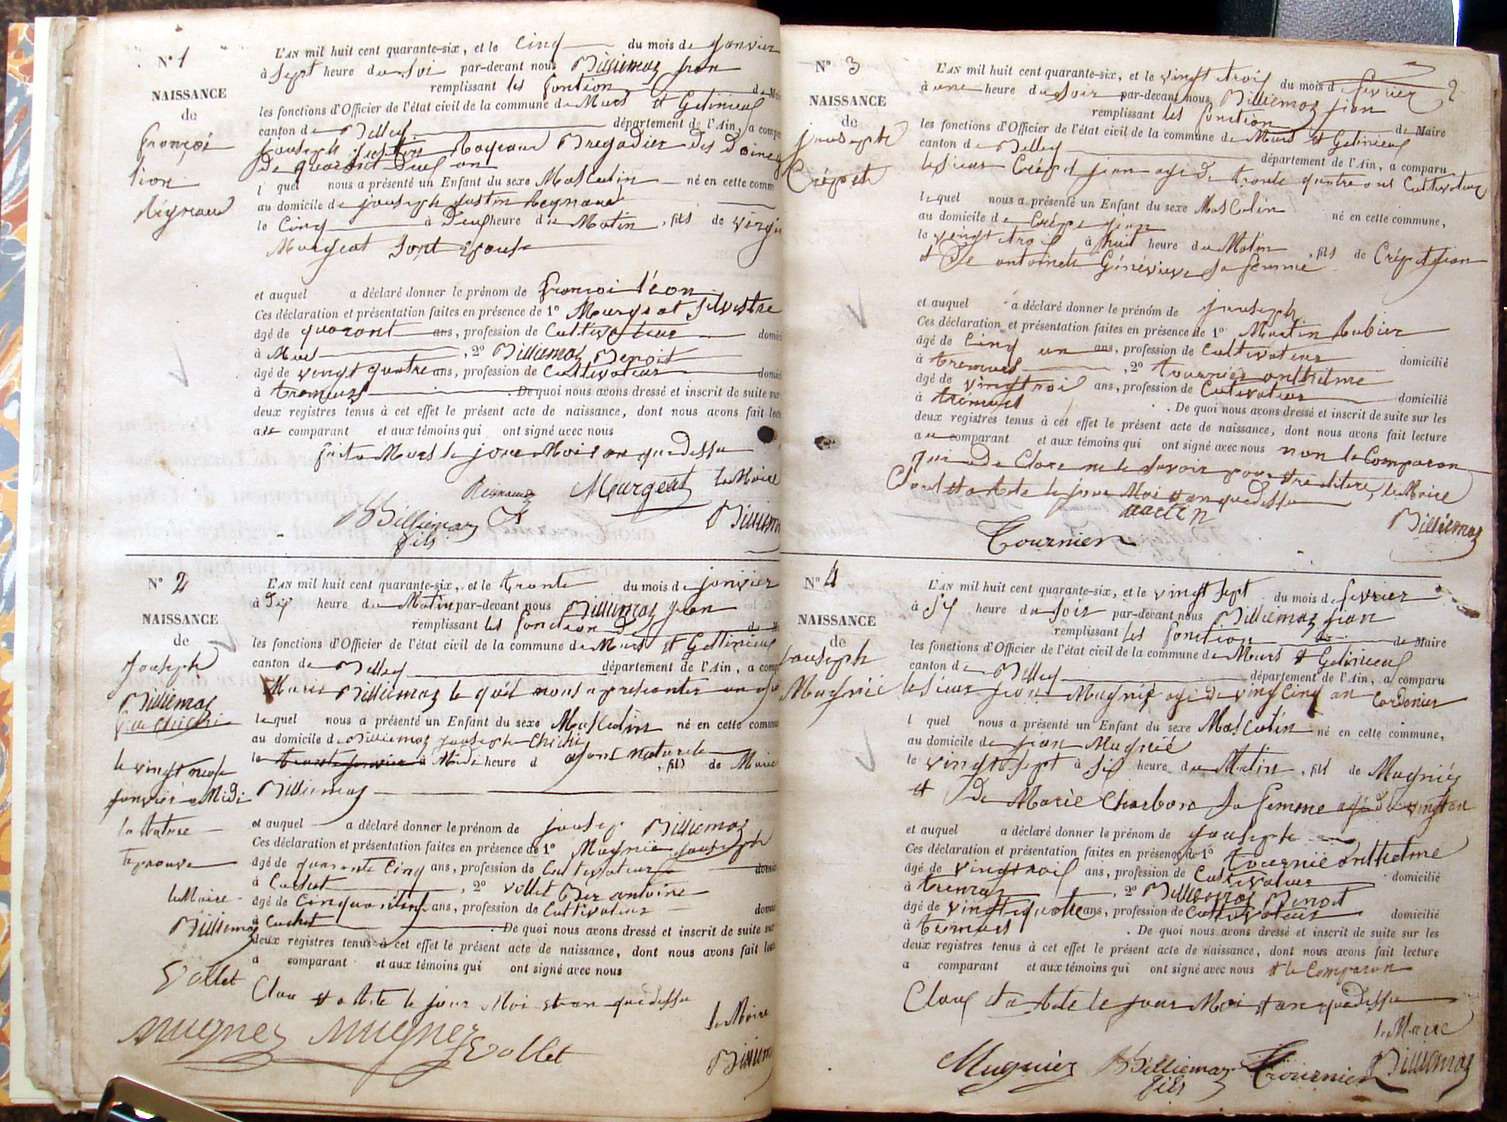 N° 1
NAISSANCE
de
françoi
léon
Reynaud
L'AN mil huit cent quarante-six, et le Cinq du mois de janvier
à Sept heure du Soi par-devant nous Billiemaz jean
remplissant les fonction de Maire
les fonctions d'Officier de l'état civil de la commune de Murs et Gelinieux
canton de Belley département de l'Ain, a comparu
jauseph justin Reynaud Bregadier des doines
de quarant Deuf an
l quel nous a présenté un Enfant du sexe Masculin né en cette comm
au domicile de jauseph justin Reynaud
le Cinq à Deuf heure du Matin, fils de virgi
Murgeat sont Epouse
et auquel a déclaré donner le prénom de françoi léon
Ces déclaration et présentation faites en présence de 1° Mourgeat Silvestre
âgé de quarant ans, profession de Cultivateur domici
à Mur , 2° Billiemaz Benoit
âgé de vingt quatre ans, profession de Cultivateur domici
à tremurs . De quoi nous avons dressé et inscrit de suite sur
deux registres tenus à cet effet le présent acte de naissance, dont nous avons fait lect
au comparant et aux témoins qui ont signé avec nous
fait a Murs le jour Moi et an quedessu
Reynaud Murgeat le Maire
B Billiemaz fils Billiem
N° 2
NAISSANCE
de
Jauseph
Billiemaz
le vingt neuf
janvier a Midi
la Rature
aprouve
le Maire
Billiemaz
Vollet
L'AN mil huit cent quarante-six, et le trante du mois de janvier
à Six heure du Matin par-devant nous Billiemaz jean
remplissant les fonction de
les fonctions d'Officier de l'état civil de la commune de Murs et Gellinieux
canton de Belley département de l'Ain, a comp
Marie Billiemaz le quel nous a presenter un
lequel nous a présenté un Enfant du sexe Masculin né en cette commune
au domicile de Billiemaz jauseph Chichi
le trante janvier à Midi heure d enfant naturele, fils de Marie
Billiemaz
et auquel a déclaré donner le prénom de jausep Billiemaz
Ces déclaration et présentation faites en présence de 1° Mugnié jauseph
âgé de quarante Cinq ans, profession de Cultivateur domici
à Cuchet , 2° vollet antoine
âgé de Cinquante ans, profession de Cultivateur domici
à Cuchet . De quoi nous avons dressé et inscrit de suite sur
deux registres tenus à cet effet le présent acte de naissance, dont nous avons fait lect
a comparant et aux témoins qui ont signé avec nous
Clou et arete le jour Moi et an quedessu
le Maire
mugnez mugnez Vollet Billiem
N° 3
NAISSANCE
de
jauseph
Crépet
2
L'AN mil huit cent quarante-six, et le vingt troi du mois de fevrier
à une heure du Soir par-devant nous Billiemaz jean
remplissant les fonction de Maire
les fonctions d'Officier de l'état civil de la commune de Murs et Gelinieux
canton de Belley département de l'Ain, a comparu
le sieur Crépet jean agé de trante quatre ans Cultivateur
lequel nous a présenté un Enfant du sexe Masculin né en cette commune,
au domicile de Crépet jean
le vingt troi à huit heure du Matin, fils de Crépet jean
et de antoinete Généviève Sa femme
et auquel a déclaré donner le prénom de jauseph
Ces déclaration et présentation faites en présence de 1° Martin Rubier
âgé de Cinq an ans, profession de Cultivateur domicilié
à tremurs , 2° tournier anthelme
âgé de vingt troi ans, profession de Cultivateur domicilié
à tremurs . De quoi nous avons dressé et inscrit de suite sur les
deux registres tenus à cet effet le présent acte de naissance, dont nous avons fait lecture
au comparant et aux témoins qui ont signé avec nous non le Comparan
qui a de Clare ne le Savoir
Clout et arete le jour Moi et an quedessu le Maire
Martin
Tournier Billiemaz
N° 4
NAISSANCE
de
Jauseph
Mugnié
L'AN mil huit cent quarante-six, et le vingt sept du mois de fevrier
à Six heure du Soir par-devant nous Billiemaz jean
remplissant les fonction de Maire
les fonctions d'Officier de l'état civil de la commune de Murs et Gelinieux
canton de Belley département de l'Ain, a comparu
le sieur jean Mugnié agé de vingt Cinq an Cordonier
l quel nous a présenté un Enfant du sexe Masculin né en cette commune,
au domicile de jean Mugnié
le vingt sept à Six heure du Matin, fils de Mugniéz
et de Marie Charbon Sa femme agé de vingt an
et auquel a déclaré donner le prénom de jauseph
Ces déclaration et présentation faites en présence de 1° tournié anthelme
âgé de vingt troi ans, profession de Cultivateur domicilié
à tremurs , 2° Billiemaz Benoit
âgé de vingt quatre ans, profession de Cultivateur domicilié
à tremurs . De quoi nous avons dressé et inscrit de suite sur les
deux registres tenus à cet effet le présent acte de naissance, dont nous avons fait lecture
a comparant et aux témoins qui ont signé avec nous et le Comparan
Clout et arete le jour Moi et an quedessu
le Maire
Mugniéz B Billiemaz fils Tournier Billiemaz